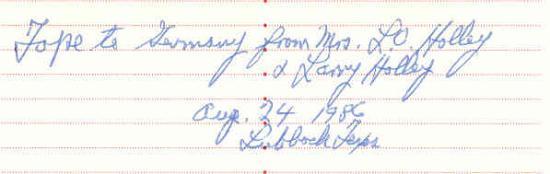 Tape to Germany from Mrs. L.O. Holley
& Larry Holley
Aug. 24 1986
Lubbock Texas